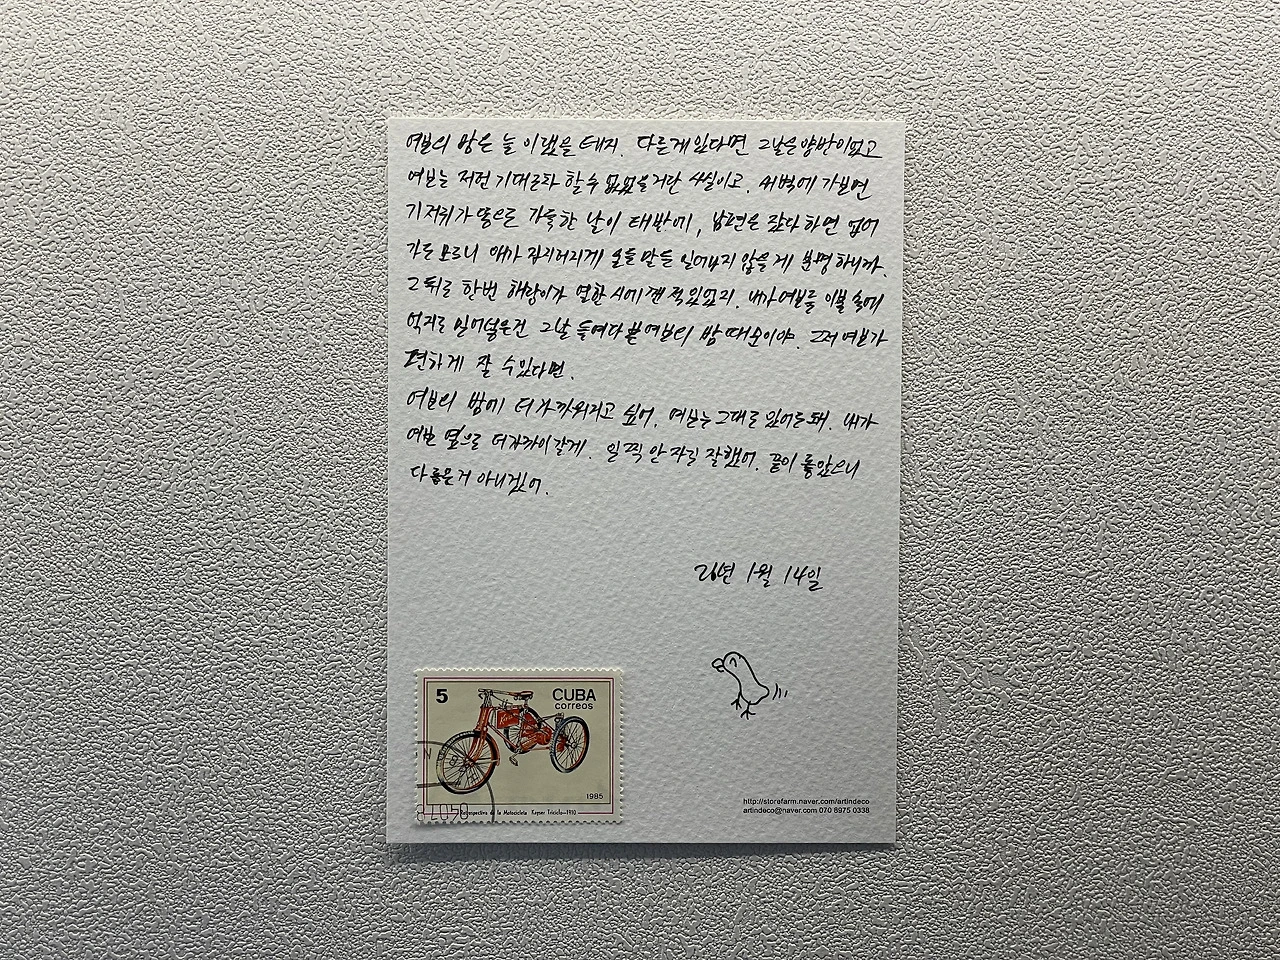 여보의 밤은 늘 이랬을 테지. 다른게 있다면 그날은 양반이었고
여보는 저런 기대조차 할 수 없었을거란 사실이고. 새벽에 가보면
기저귀가 똥으로 가득한 날이 태반에, 남편은 잤다 하면 업어
가도 모르니 애가 자지러지게 울든 말든 일어나지 않을 게 분명하니까.
그 뒤로 한번 해랑이가 열한 시에 깬 적 있었지. 내가 여보를 이불 속에
억지로 밀어넣은건 그날 들여다 본 여보의 밤 때문이야. 그저 여보가
편하게 잘 수 있다면.
여보의 밤에 더 가까워지고 싶어. 여보는 그대로 있어도 돼. 내가
여보 옆으로 더 가까이 갈게. 일찍 안 자길 잘했어. 끝이 좋았으니
다 좋은거 아니겠어.
21년 1월 14일
5
CUBA
correos
1985
Retrospectiva de la Motocicleta Kayser Triciclo-1910
http://storefarm.naver.com/artindeco
artindeco@naver.com 070 8975 0338